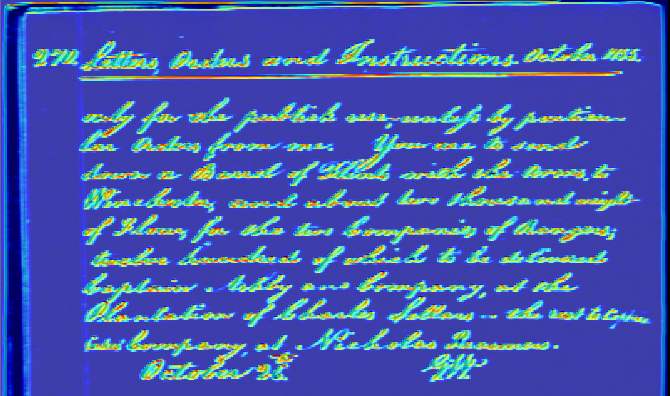 270. Letters, Orders and Instructions. October 1755.
only for the publick use, unless by particu-
lar Orders from me. You are to send
down a Barrel of Flints with the Arms, to
Winchester, and about two thousand weight
of Flour, for the two Companies of Rangers;
twelve hundred of which to be delivered
Captain Ashby and Company, at the
Plantation of Charles Sellars -- the rest to Cap
Company, at Nicholas Reasmers.
October 26. GW